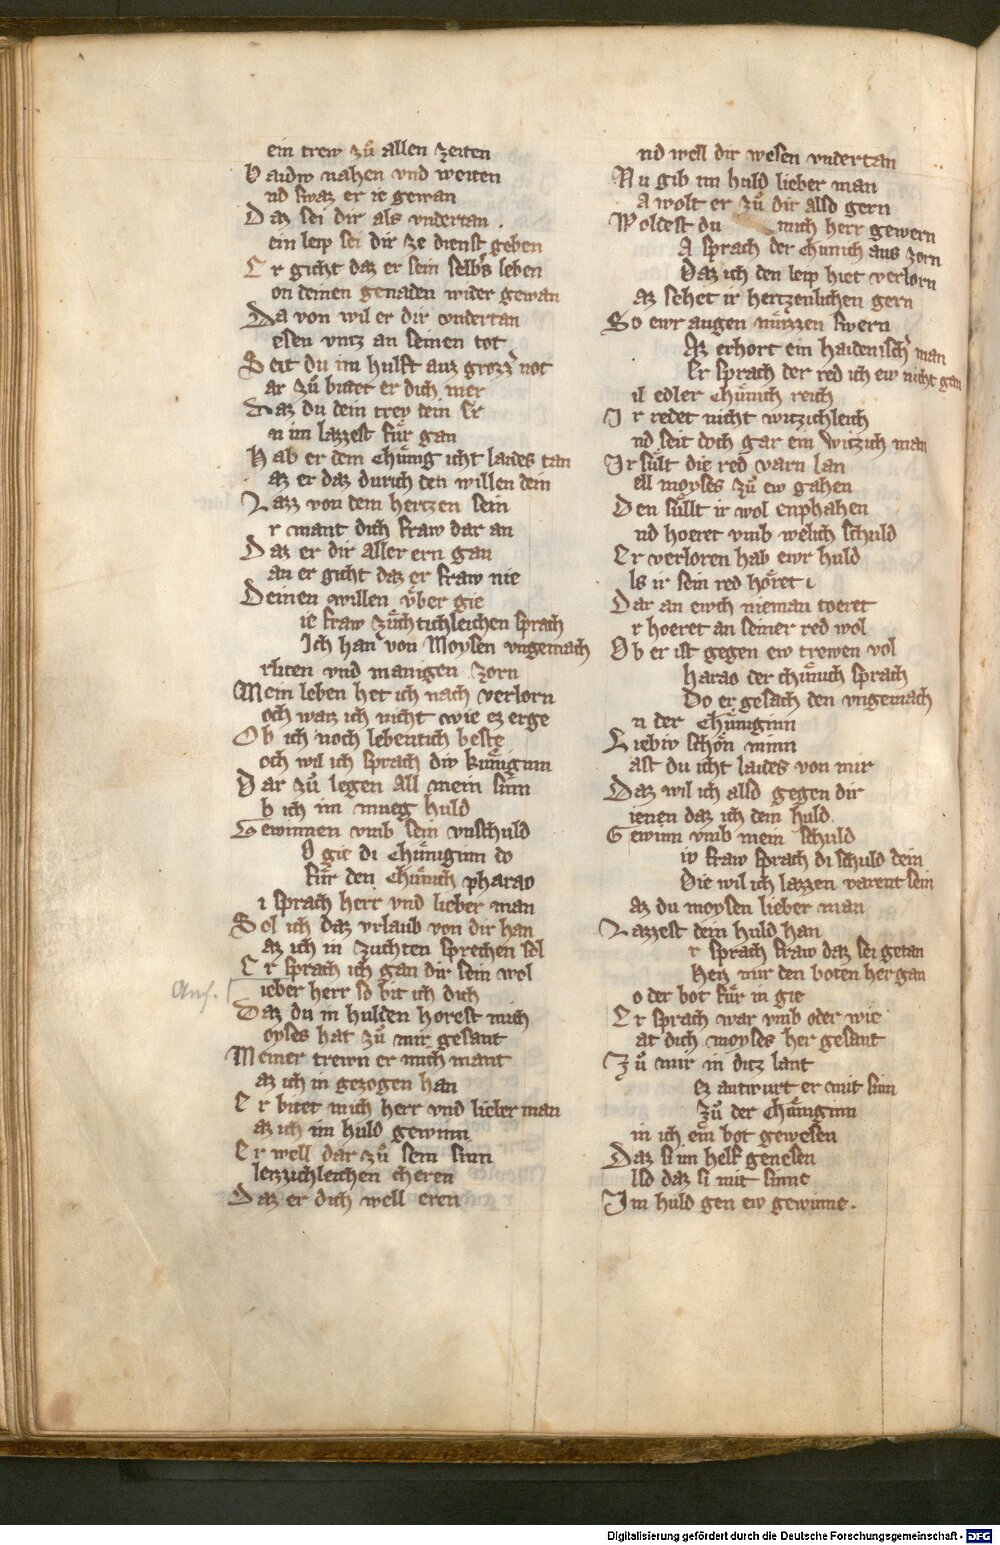 ein trew zuͦ allen zeiten
Baidiv nahen vnd weiten
nd swaz er ie gewan
Daz sei dir als vndertan .
ein leip sei dir ze dienst geben
Er gicht daz er sein selbs leben
on deinen genaden wider gewan
Da von wil er dir vndertan
esen vntz an seinen tot
Seit du im hulft auz grozz͛ not
ar zuͦ bittet er dich mer
Daz du dein trew dein Er
n im lazzest fuͤr gan
Hab er dem Chuͤnig icht laides tan
az er daz durich den willen dein
Lazz von dem hertzen sein
r mant dich fraw dar an
Daz er dir aller ern gan
an er gicht daz er fraw nie
Deinen willen vͤber gie
ie fraw zuͤchtichleichen sprach
Ich han von Moysen vngemach
rliten vnd manigen zorn
Mein leben het ich nach verlorn
och waz ich nicht wie ez erge
Ob ich noch lebentich beste
och wil ich sprach div kuͤniginn
Dar zuͦ legen All mein sinn
b ich im mueg huld
Gewinnen vmb sein vnschuld
O gie di Chuͤniginn do
fuͤr den Chuͤnich pharao
i sprach herr vnd lieber man
Sol ich daz vrlaub von dir han
az ich in zuchten sprechen sol
Er sprach ich gan dir sein wol
ieber herr so bit ich dich
Daz du in hulden horest mich
oyses hat zuͦ mir gesant
Meiner trewn er mich mant
az ich in gezogen han
Er bitet mich herr vnd lieber man
az ich im huld gewinn
Er well dar zuͦ sein sinn
letzzichleichen cheren
Daz er dich well eren
Anf.
nd well dir wesen vndertan
Nu gib im huld lieber man
a wolt er zuͦ dir also gern
Woldest du mich herr gewern
A sprach der chunich aus zorn
Daz ich den leip hiet verlorn
az sehet ir hertzenlichen gern
So ewr augen muͤzzen swern
Az erhort ein haidenisch͛ man
Er sprach der red ich ew nicht gan
il edler Chuͤnich reich
Ir redet nicht witzichleich
nd seit doch gar ein witzich man
Ir suͤlt die red varn lan
ell moyses zuͦ ew gahen
Den suͤllt ir wol enphahen
nd hoeret vmb welich schuld
Er verloren hab ewr huld
ls ir sein red hoͤret i
Dar an ewch nieman toeret
r hoeret an seiner red wol
Ob er ist gegen ew trewen vol
harao der chuͤnich sprach
Do er gesach den vngemach
n der Chuͤniginn
Liebiv schoͤn minn
ast du icht laides von mir
Daz wil ich also gegen dir
ienen daz ich dein huld
Gewinn vmb mein schuld
iv fraw sprach di schuld dein
Die wil ich lazzen varent sein
az du moysen lieber man
Lazzest dein huld han
r sprach fraw daz sei getan
Heiz mir den boten her gan
o der bot fuͤr in gie
Er sprach war vmb oder wie
at dich moyses her gesant
Zuͦ mir in ditz lant
ez antwurt er mit sinn
Zuͦ der Chuͤniginn
in ich ein bot gewesen
Daz si im helf genesen
lso daz si mit sinne
Im huld gen ew gewinne .
Digitalisierung gefördert durch die Deutsche Forschungsgemeinschaft - DFG